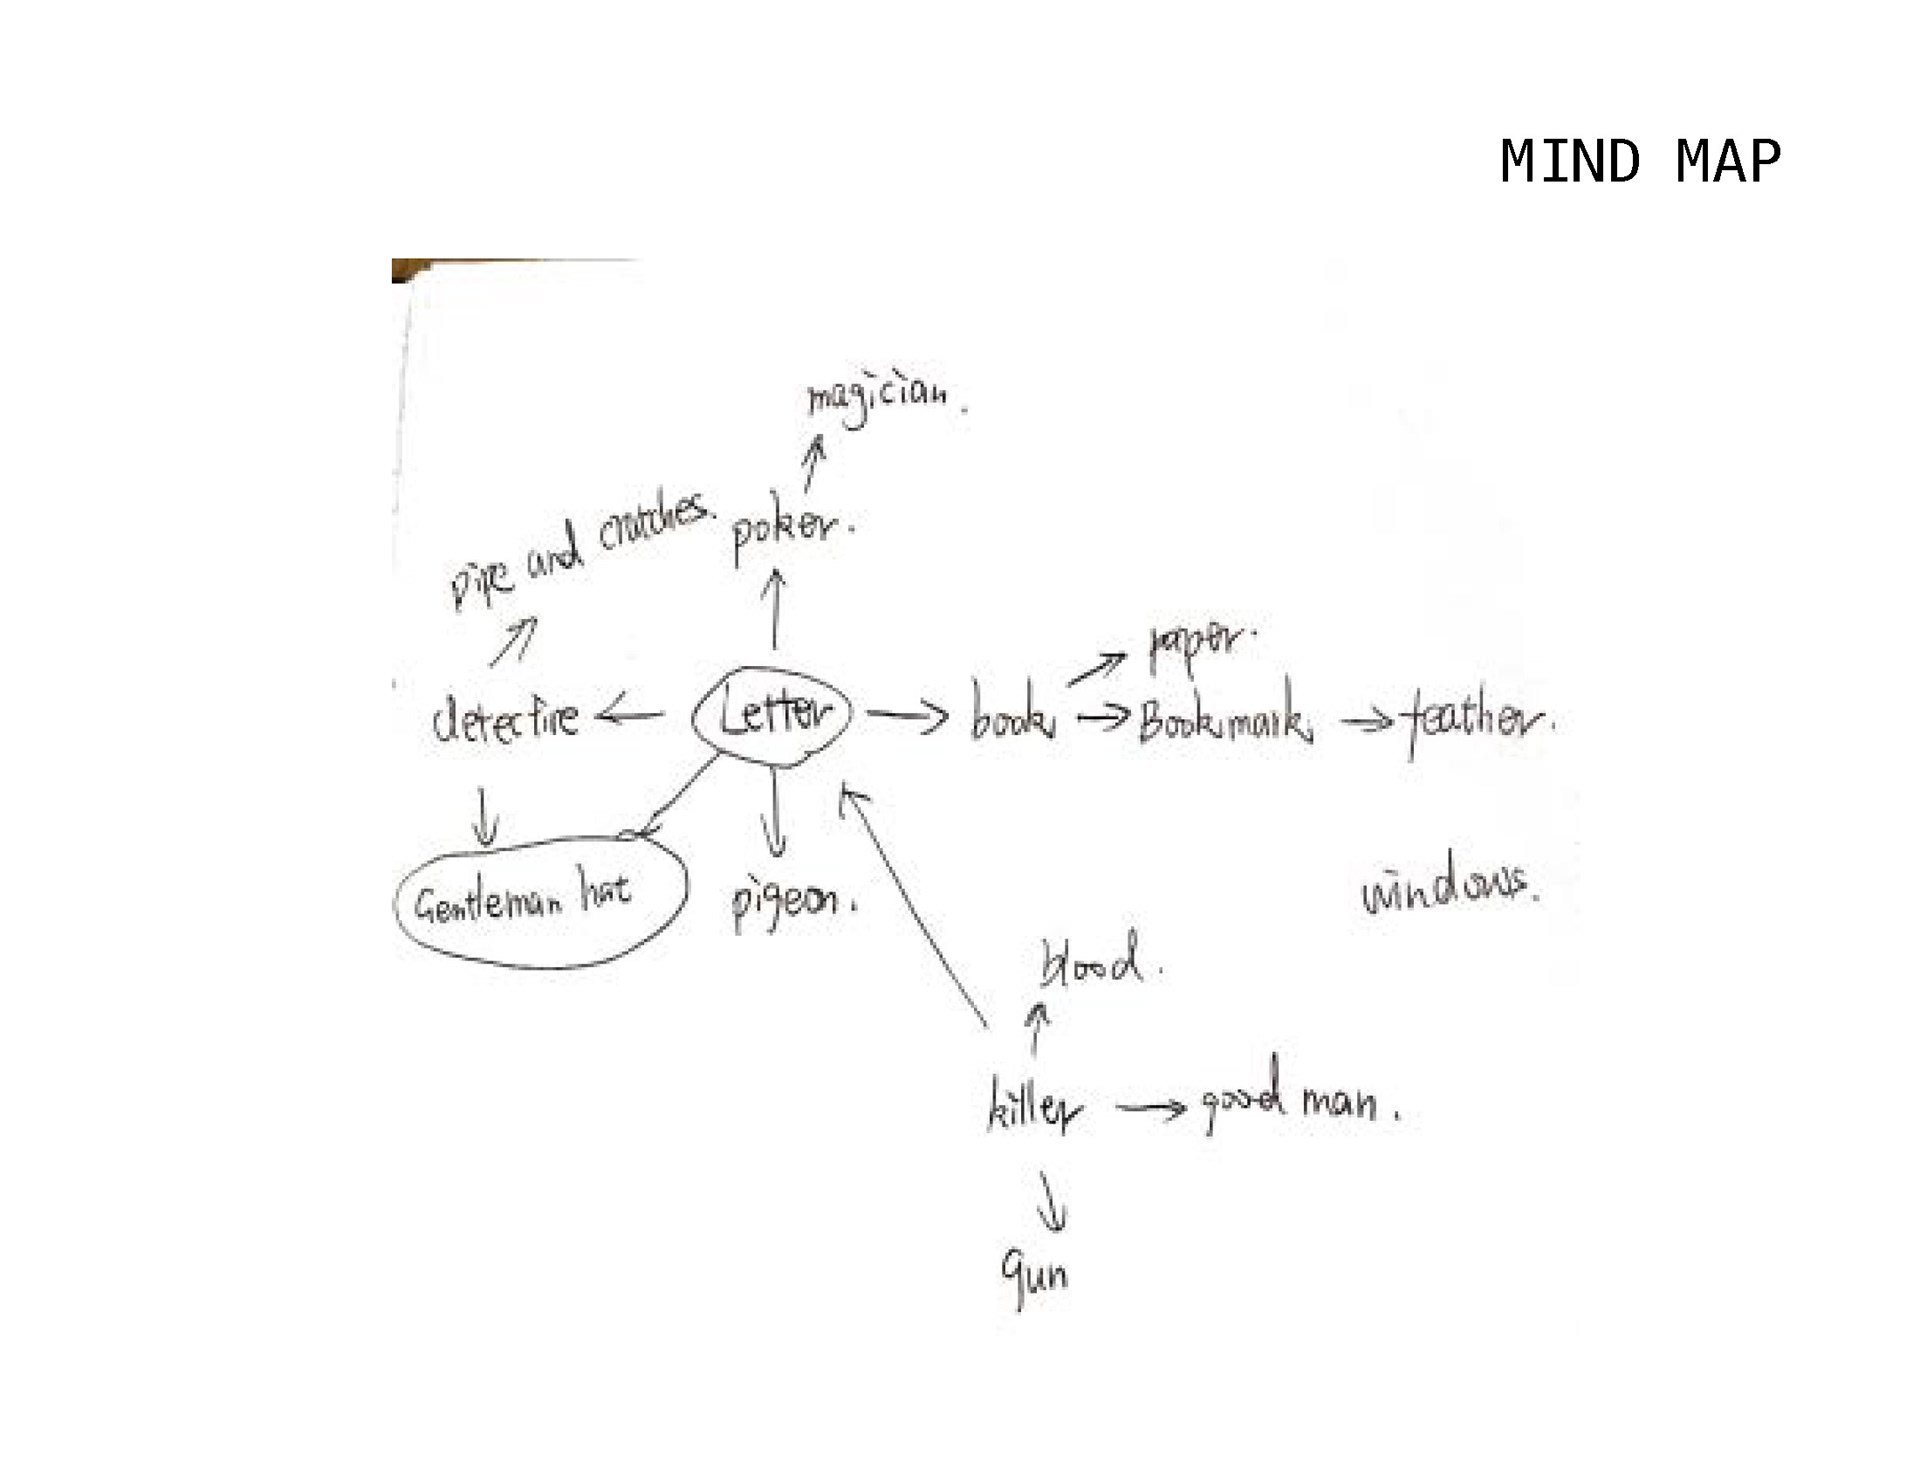 MIND MAP
magician.
pipe and crutches.
poker.
paper.
detective
Letter
book
Bookmark
feather.
Gentleman hat
pigeon.
windows.
blood.
killer
good man.
gun